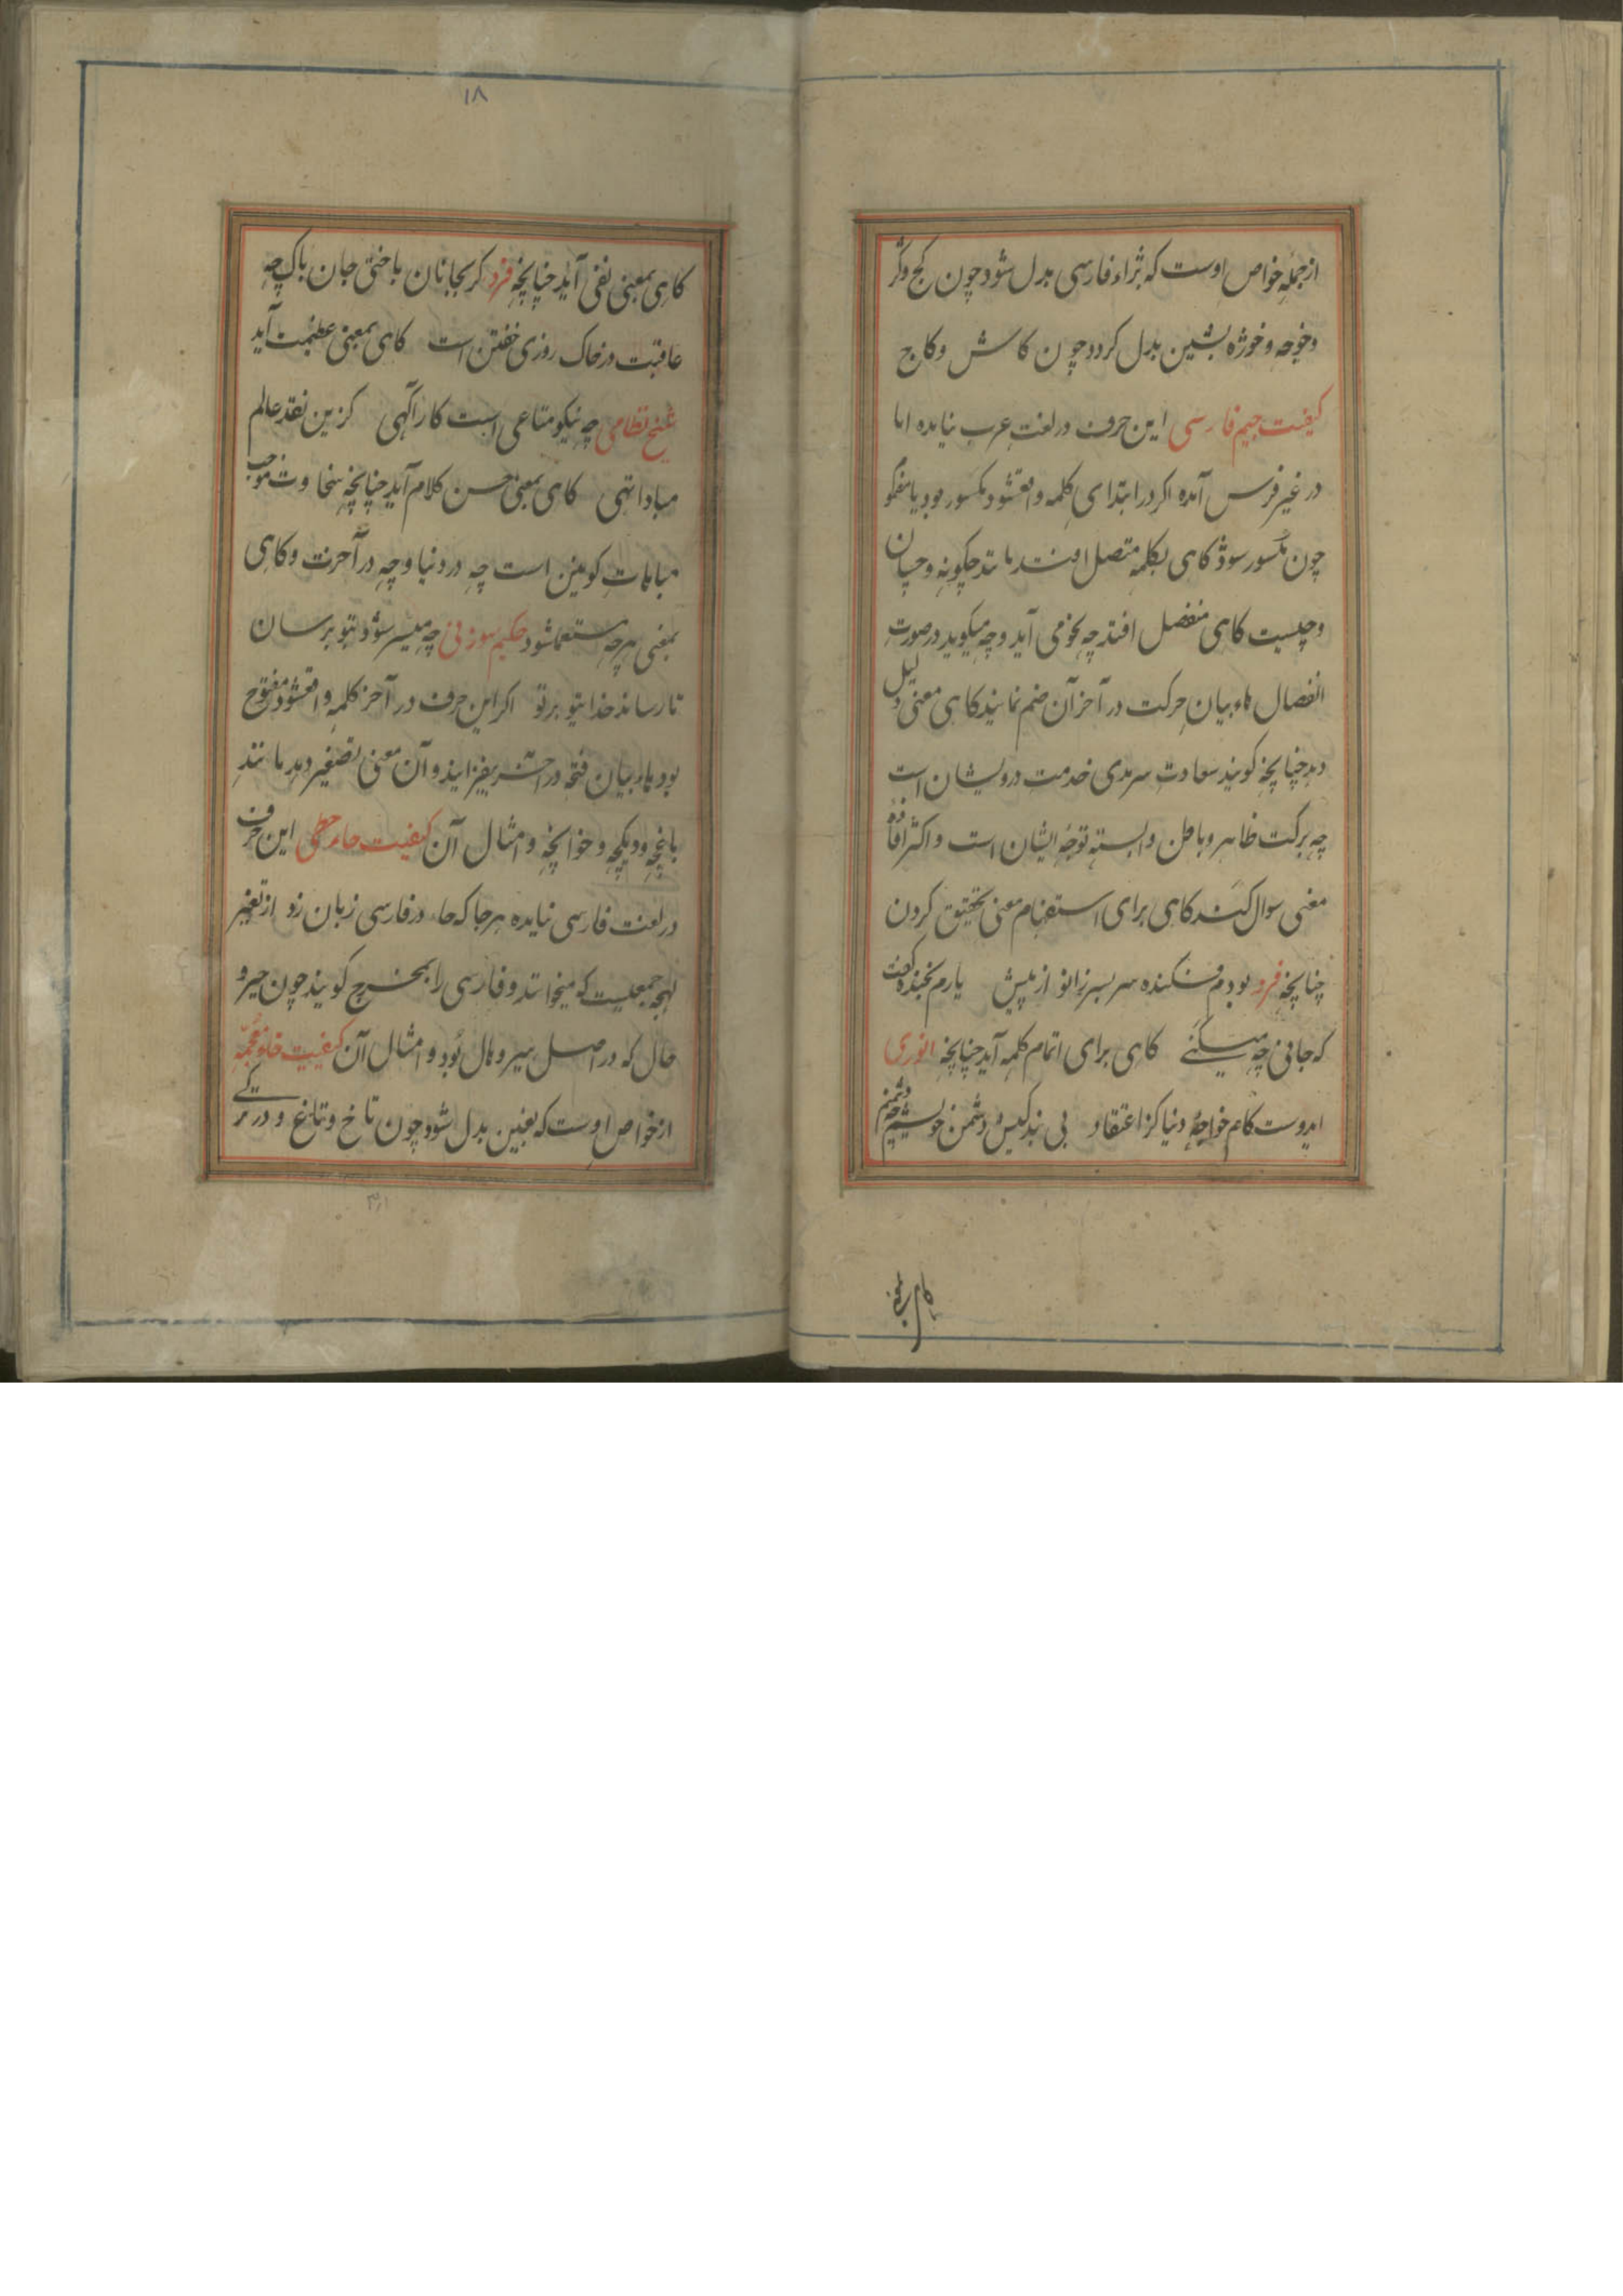 از جمله خواص اوست که بژاء فارسی بدل شود چون کج و کژ
و خوجه و خوژه بشین بدل کردد چون کاش و کاج
کیفیت جیم فارسی این حرف در لغت عرب نیامده اما
در غیر فرس آمده اکر در ابتدای کلمه واقعشود مکسور بود یا مضموم
چون مکسور شود کاهی بکلمه متصل افتد مانند چکونه و چسان
و چیست کاهی منفصل افتد چه می آید و چه میکوید در صورت
انفصال هاء بیان حرکت در آخر آن ضم نمایند کاهی معنی دلیل
دهد چنانچه کویند سعادت سرمدی خدمت درویشان است
چه برکت ظاهر و باطن وابسته توجه ایشان است و اکثر افاده
معنی سوال کند کاهی برای استفهام معنی تحقیق کردن
چنانچه فرد بودم فکنده سر بسر زانو از پیش یارم بخنده کفت
که جانی چه میکنی کاهی برای اتمام کلمه آید چنانچه انوری
ایدوست کام خواجه دنیا کز اعتقاد بی دشمن خویشم چه دشمنم
۱۸
کاهی بمعنی نفی آید چنانچه فرد کر بجانان باختی جان باک چه
عاقبت در خاک روزی خفتن است کاهی بمعنی عظمت آید
شیخ نظامی چه نیکو متاعی است کار آکهی کزین نقد عالم
مبادا تهی کاهی بمعنی حسن کلام آید چنانچه سخاوت موجب
مباهات کونین است چه در دنیا و چه در آخرت و کاهی
بمعنی هرچه مستعملشود حکیم سوزنی چه میسر شود بتو برسان
تا رساند خدا بتو برتو اکر این حرف در آخر کلمه واقعشود مفتوح
بود هاء بیان فتحه در آخرش بیفزایند و آن معنی تصغیر دهد مانند
باغچه و دیکچه و خوانچه و امثال آن کیفیت حاء حطی این حرف
در لغت فارسی نیامده هر جا که حاء در فارسی زبان زد از تغییر
لهجه جمعیست که میخوانند و فارسی را بمخرج کویند چون حیز و
حال که در اصل هیز و هال بود و امثال آن کیفیت خاء معجمه
از خواص اوست که بغین بدل شود چون تاخ و تاغ و در ترکی